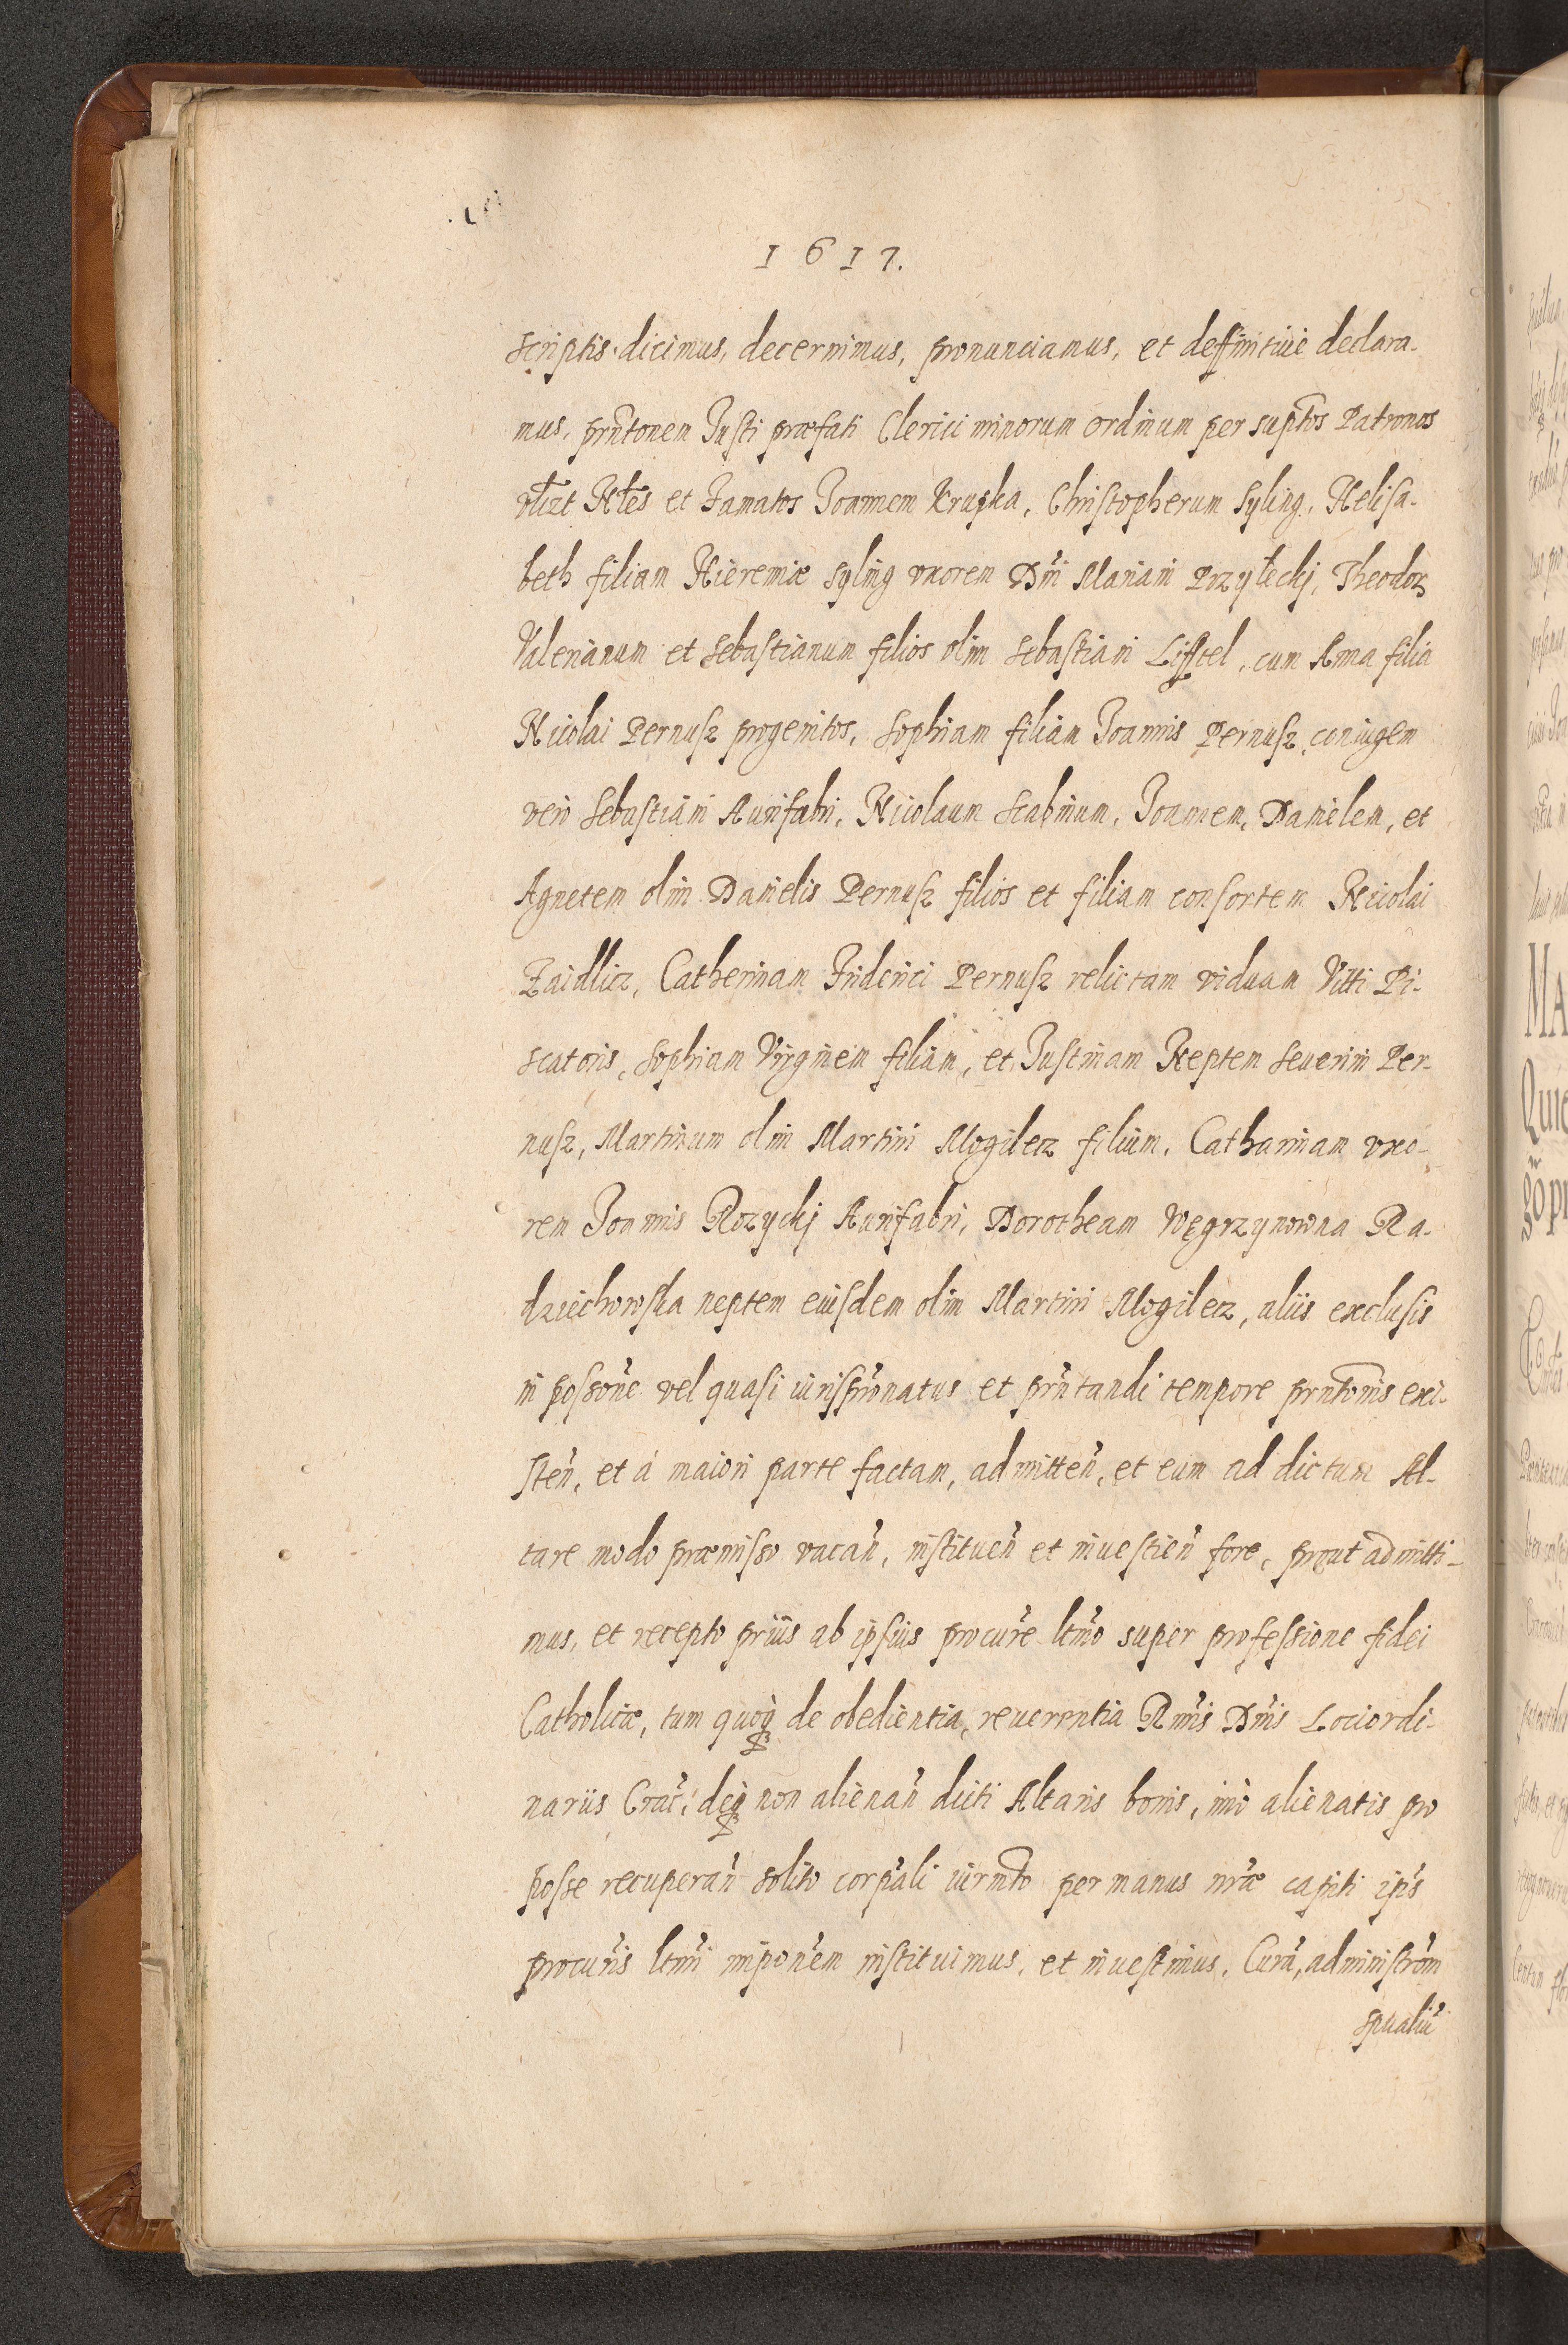 1617.
scriptis dicimus, decernimus, pronunciamus, et deffinitiuè declara-
mus, prñtonem Justi præfati Clerici minorum ordinum per suptos Patronos
vtizt Nles et Famatos Joannem Krupka, Christopherum Syling, Helisa-
beth filiam Hieremiæ Syling vxorem Dñi Mariani Przyłeckj, Theodor
Valerianum et Sebastianum filios olim Sebastiani Lifftel, cum Anna filia
Nicolai Pernusz progenitos, Sophiam filiam Joannis Pernusz, coniugem
vero Sebastiani Aurifabri, Nicolaum Scabinum, Joannem, Danielem, et
Agnetem olim Danielis Pernusz filios et filiam consortem Nicolai
Zaidlicz, Catherinam Friderici Pernusz relictam viduam Vitti Pi-
scatoris, Sophiam Virginem filiam, et Justinam Neptem Seuerini Per-
nusz, Martinum olim Martini Mogilecz filium, Catharinam vxo-
rem Joannis Rozyckj Aurifabri, Dorotheam Węgrzynowna Ra-
dziechowska neptem eiusdem olim Martini Mogilecz, aliis exclusis
in possone vel quasi iurispronatus et prñtandi tempore prntonis exi-
steñ, et à maiori parte factam, admitteñ, et eum ad dictum Al-
tare modo præmisso vacañ, institueñ et inuestieñ fore, prout admitti-
mus, et recepto priùs ab ipsius procure ltmo super professione fidei
Catholicæ, tum quoq de obedientia, reuerentia Rmis Dnis Lociordi-
nariis Crac, deq non alienañ dicti Altaris bonis, imò alienatis pro
posse recuperañ solito corpali iurmto per manus nræ capiti ips
procuris ltmi imponem instituimus, et inuestimus, Curā, administrom
spualiū